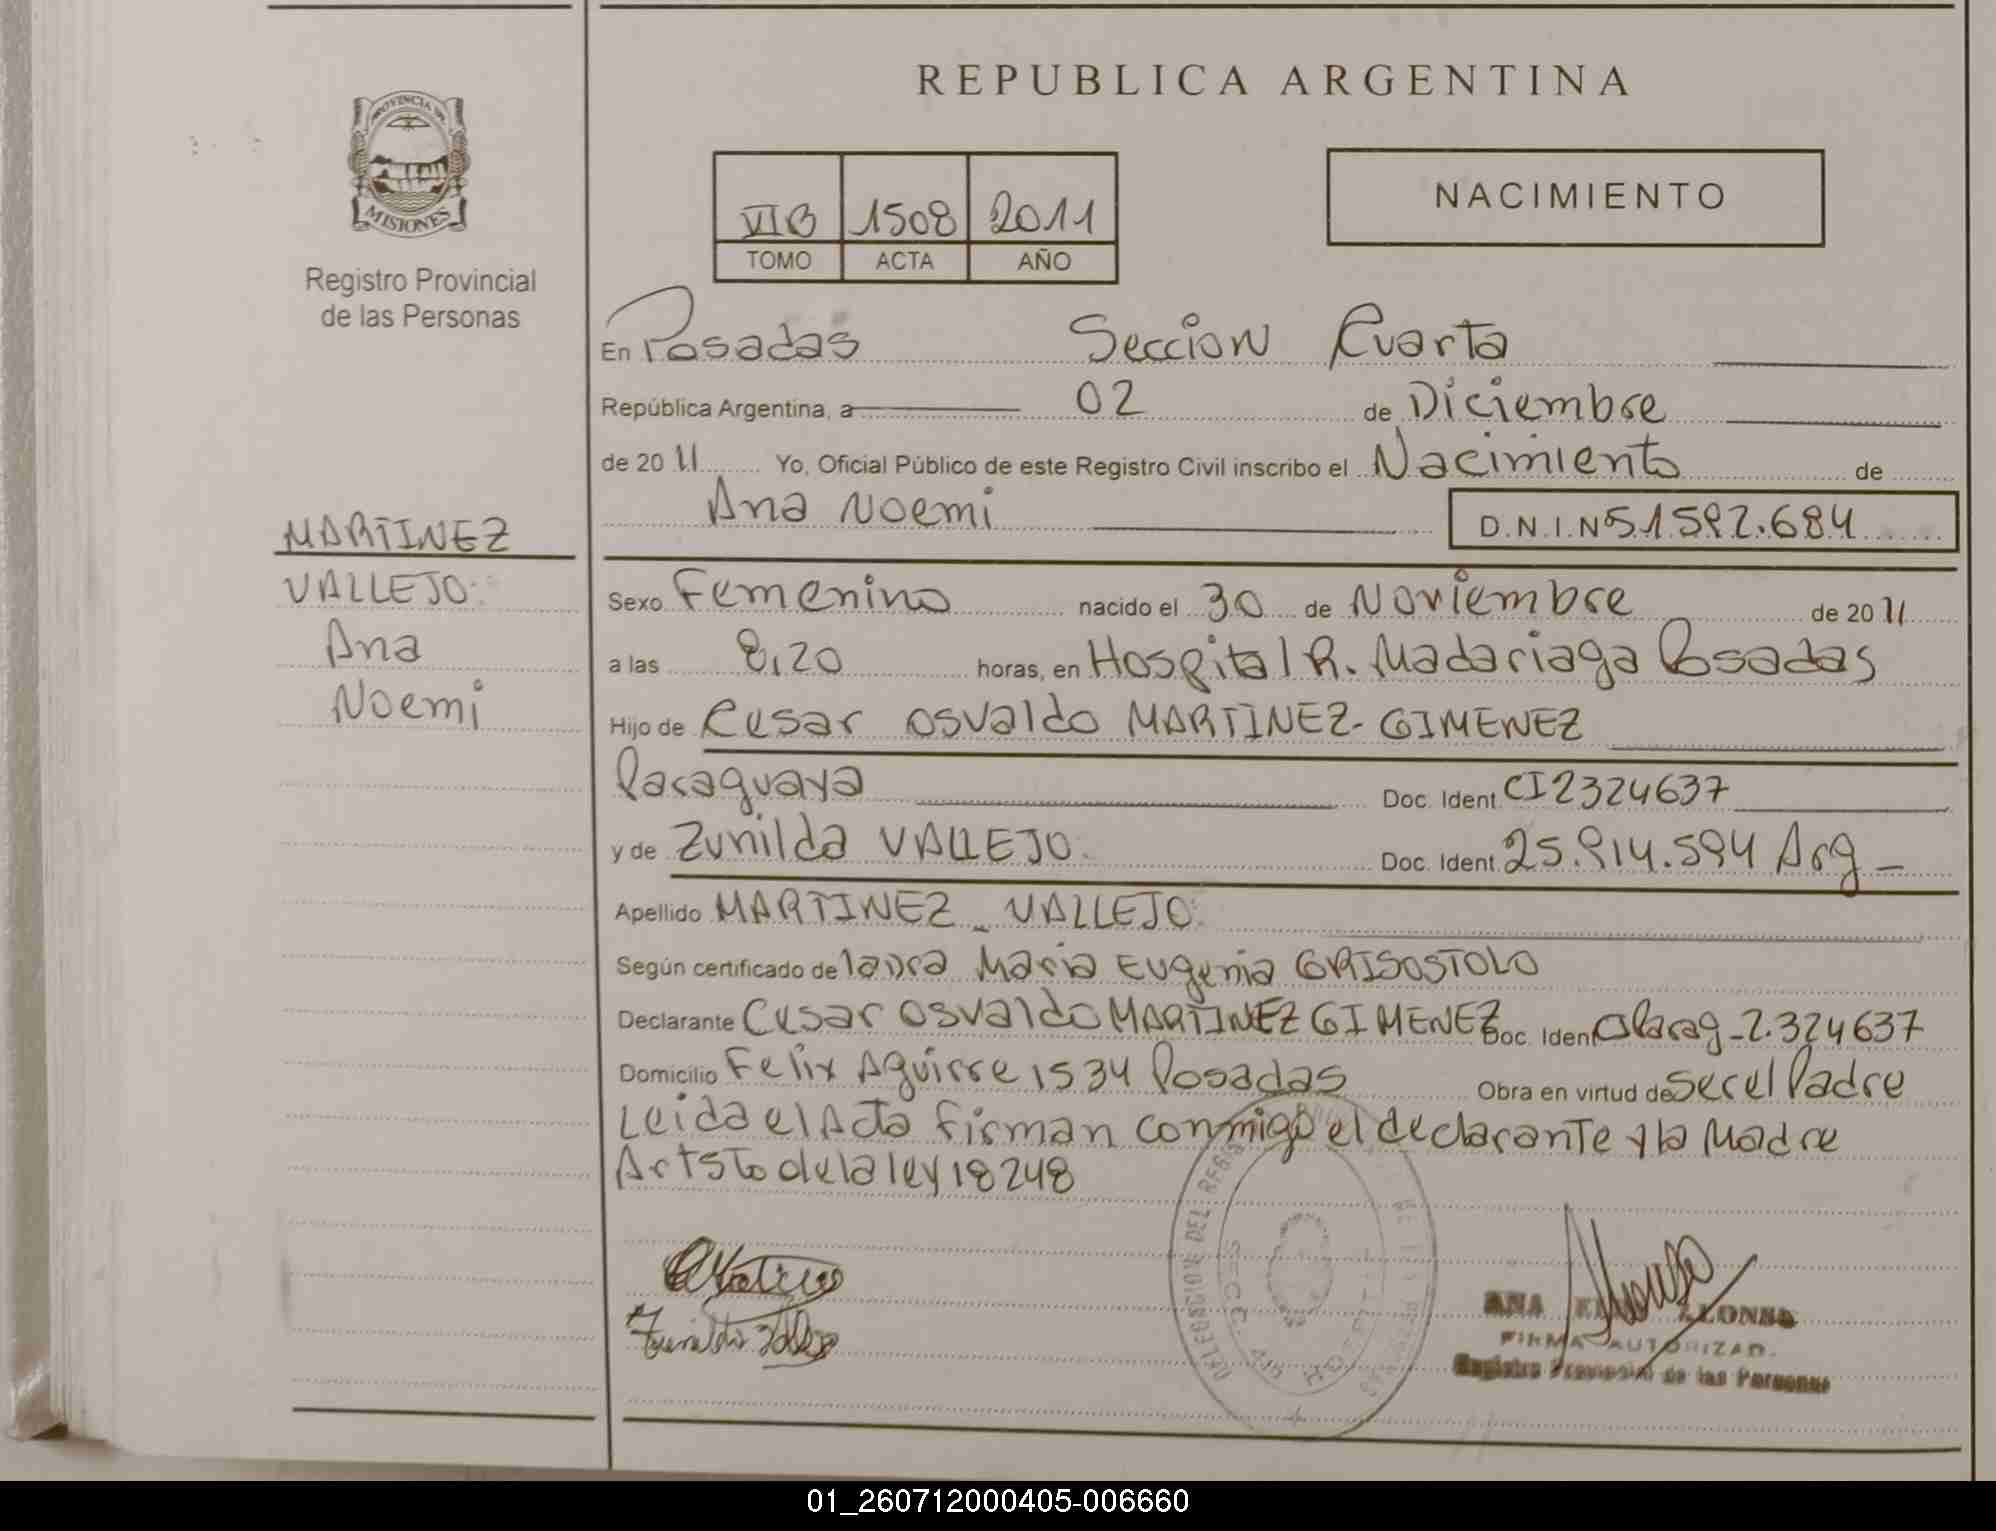 PROVINCIA DE
MISIONES
Registro Provincial
de las Personas
MARTINEZ
VALLEJO
Ana
Noemi
REPUBLICA ARGENTINA
VII B 1508 2011
TOMO ACTA AÑO
NACIMIENTO
En Posadas Seccion Cuarta
República Argentina, a 02 de Diciembre
de 20 11 Yo, Oficial Público de este Registro Civil inscribo el Nacimiento de
Ana Noemi D.N.I.Nº 51.592.684
Sexo Femenino nacido el 30 de Noviembre de 20 11
a las 8,20 horas, en Hospital R. Madariaga Posadas
Hijo de Cesar Osvaldo MARTINEZ-GIMENEZ
Paraguaya Doc. Ident. CI 2324637
y de Zunilda VALLEJO Doc. Ident. 25.914.594 Arg
Apellido MARTINEZ VALLEJO
Según certificado de la Dra Maria Eugenia GRISOSTOLO
Declarante Cesar Osvaldo MARTINEZ GIMENEZ Doc. Ident. CI Parag 2.324637
Domicilio Felix Aguirre 1534 Posadas Obra en virtud de Ser el Padre
Leida el Acta firman conmigo el declarante y la Madre
Art 5to de la ley 18248
DELEGACION DEL REGIS
ANA ALONSO
FIRMA AUTORIZAD.
Registro Provincial de las Personas
01_260712000405-006660